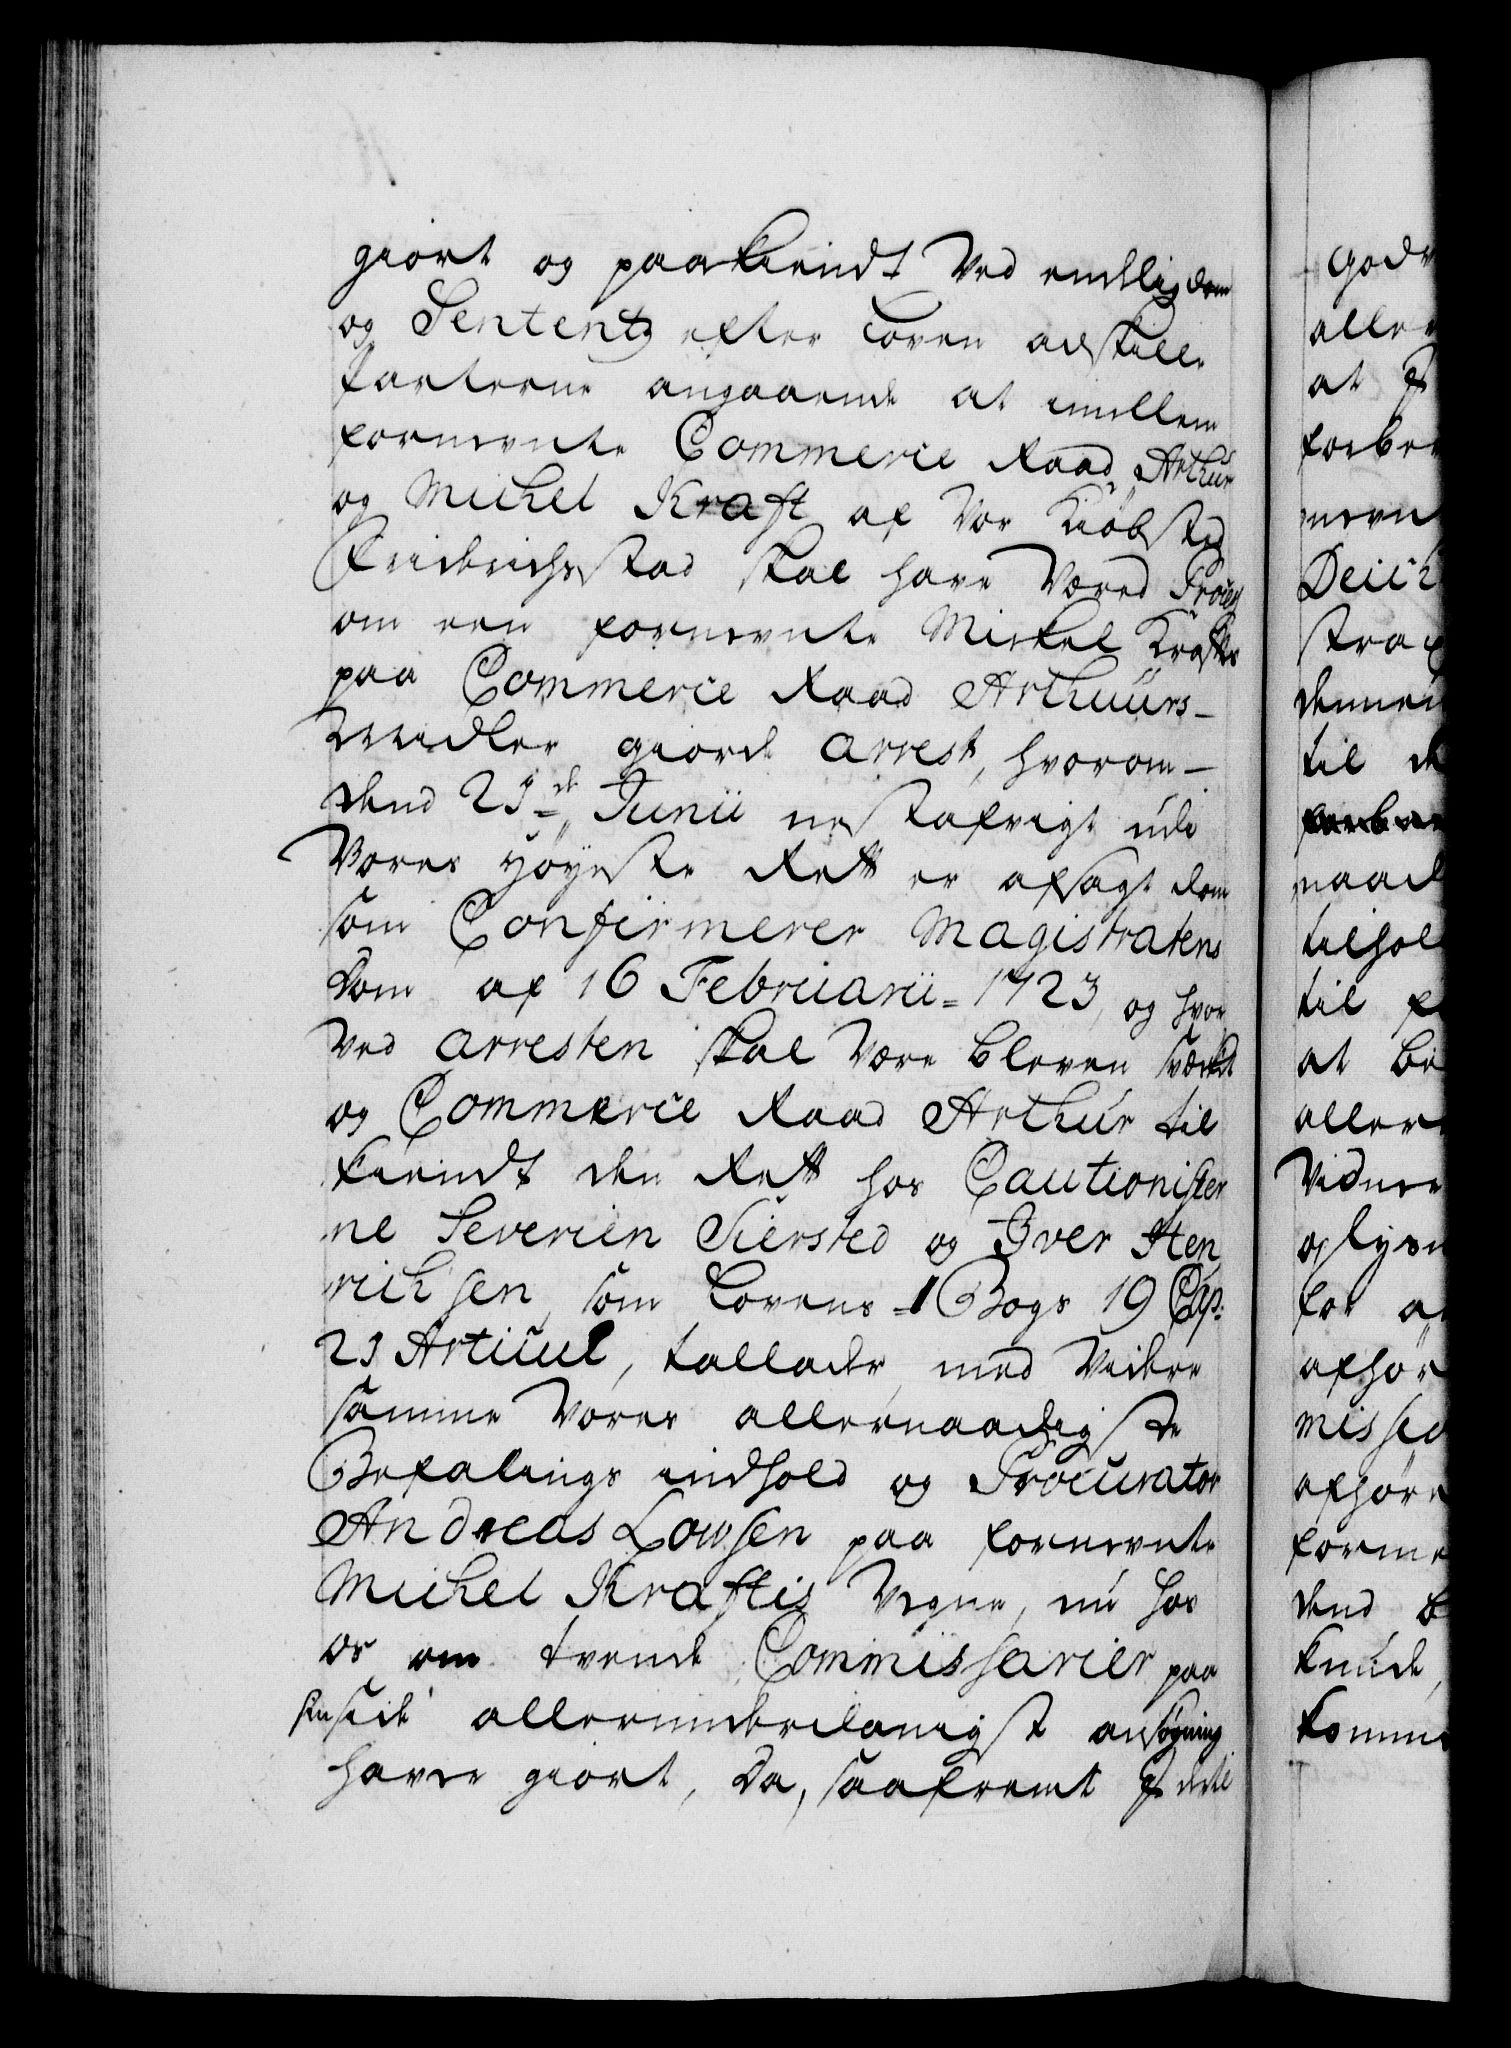 giort og paakiendt Ved endelig dom
og Sententz efter Loven adskille
Parterne angaaende at imellem
fornevnte Commerce Raad Arthur
og Michel Kraft af Vor Kiøbsted
Friderichsstad skal have Været Proces
om een fornevnte Michel Krafts
paa Commerce Raad Arthuurs
Midler giorde arrest, hvorom
dend 21de Junii nestafvigt udi
Vores Høyeste Rett er afsagt dom
som Confirmerer Magistratens
dom af 16 Februarii 1723, og hvor
Ved arresten skal Være bleven
og Commerce Raad Arthur til
kiendt den Rett hos Cautionister
ne Severien Siersted og Iver Hen
richsen, som Lovens 1 Bogs 19 Cap:
21 Articul, tillader, med Videre
samme Vores allernaadigste
Befalings indhold og Procurator
Andreas Lowsen paa fornevnte
Michel Kraftis Vegne, nu hos
os om tvende Commissarier paa
sin side allerunderdanigst ansøgning
haver giort, Da, saafremt I det

godv
aller
at I
forbe
nevn
Deich
strax
dennem
til de
naad
tilhol
til
at be
aller
Vidner
oplysn
for a
afhør
missa
afhøre
forme
dend b
kunde,
komme